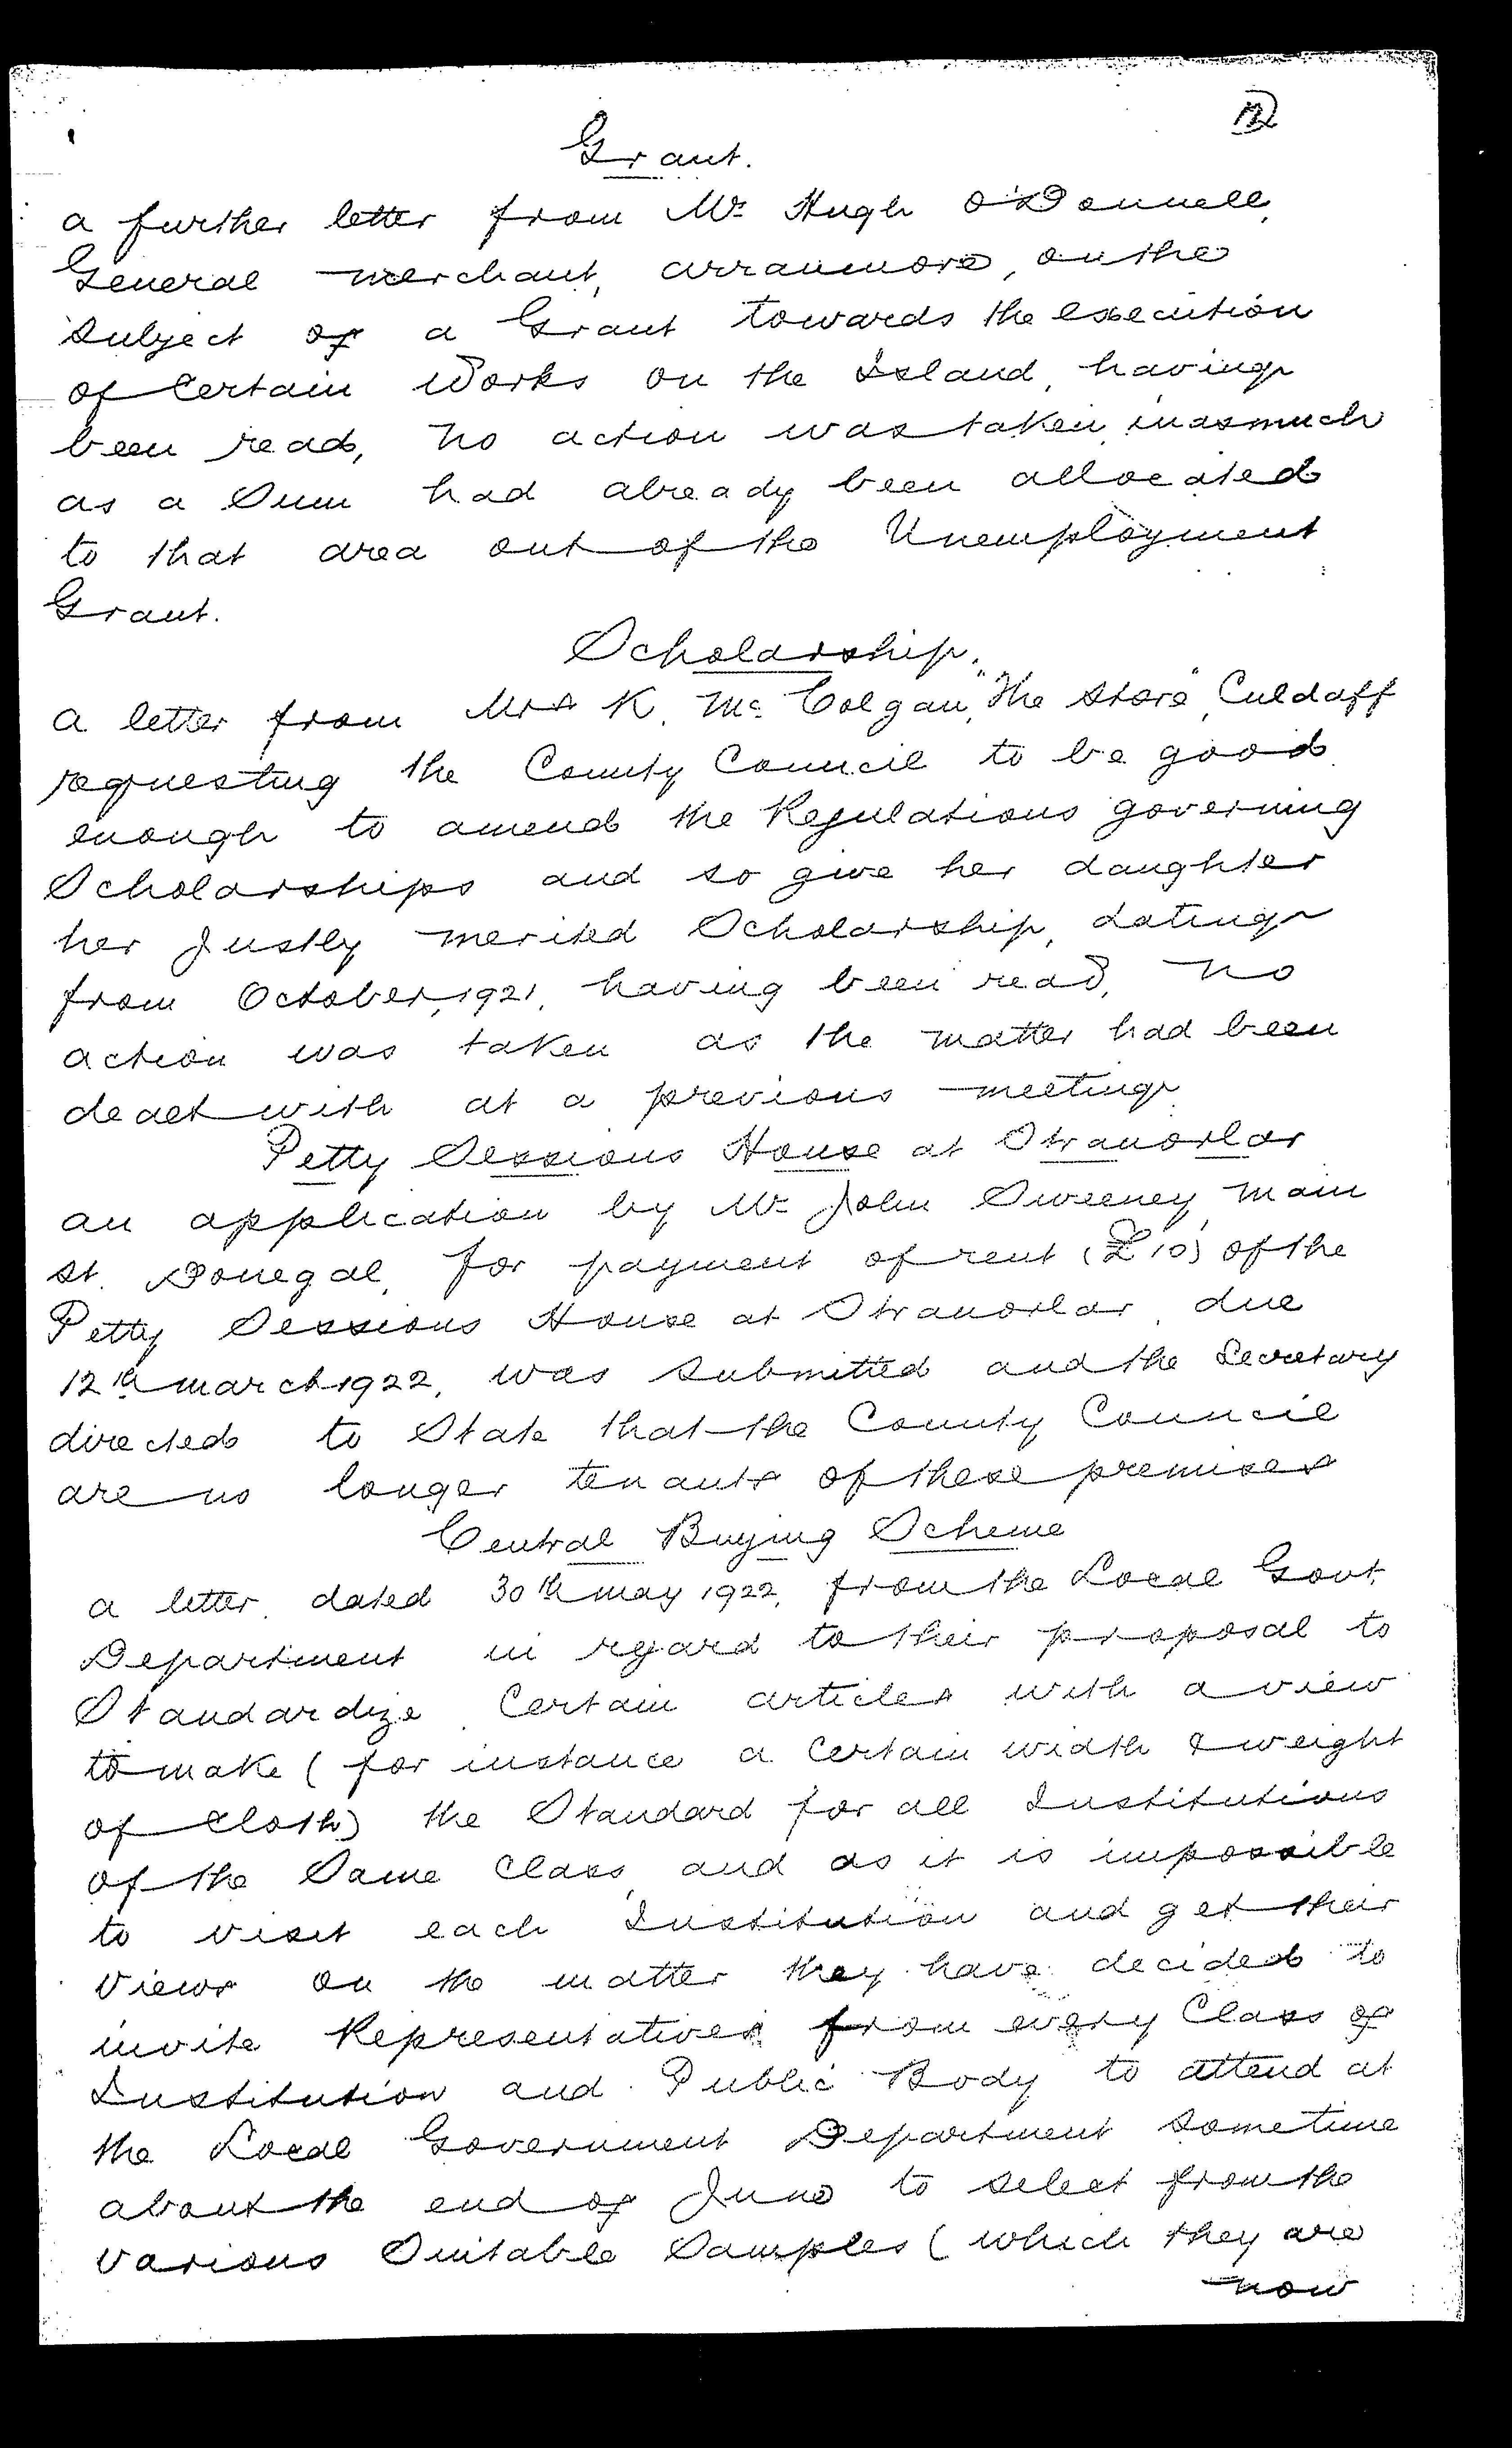 Grant.
a further letter from Mr Hugh O'Donnell,
General merchant, arranmore, on the
subject of a Grant towards the execution
of Certain Works on the Island, having
been read, no action was taken, inasmuch
as a Sum had already been allocated
to that area out of the Unemployment
Grant.
Scholarship.
a letter from Mrs K. Mc Colgan, "The Store", Culdaff
requesting the County Council to be good
enough to amend the Regulations governing
Scholarships and so give her daughter
her Justly merited Scholarship, dating
from October, 1921, having been read, no
action was taken as the matter had been
dealt with at a previous meeting
Petty Sessions House at Stranorlar
an application by Mr John Sweeney, Main
St. Donegal, for payment of rent (£10) of the
Petty Sessions House at Stranorlar, due
12th march 1922, was submitted and the Secretary
directed to State that the County Council
are no longer tenants of these premises
Central Buying Scheme
a letter dated 30th may 1922, from the Local Govt.
Department in regard to their proposal to
Standardize Certain articles with a view
to make (for instance a Certain width & weight
of Cloth) the Standard for all Institutions
of the Same Class, and as it is impossible
to visit each Institution and get their
views on the matter they have decided to
invite Representatives from every Class of
Institution and Public Body to attend at
the Local Government Department sometime
about the end of June to select from the
various Suitable Samples (which they are
now